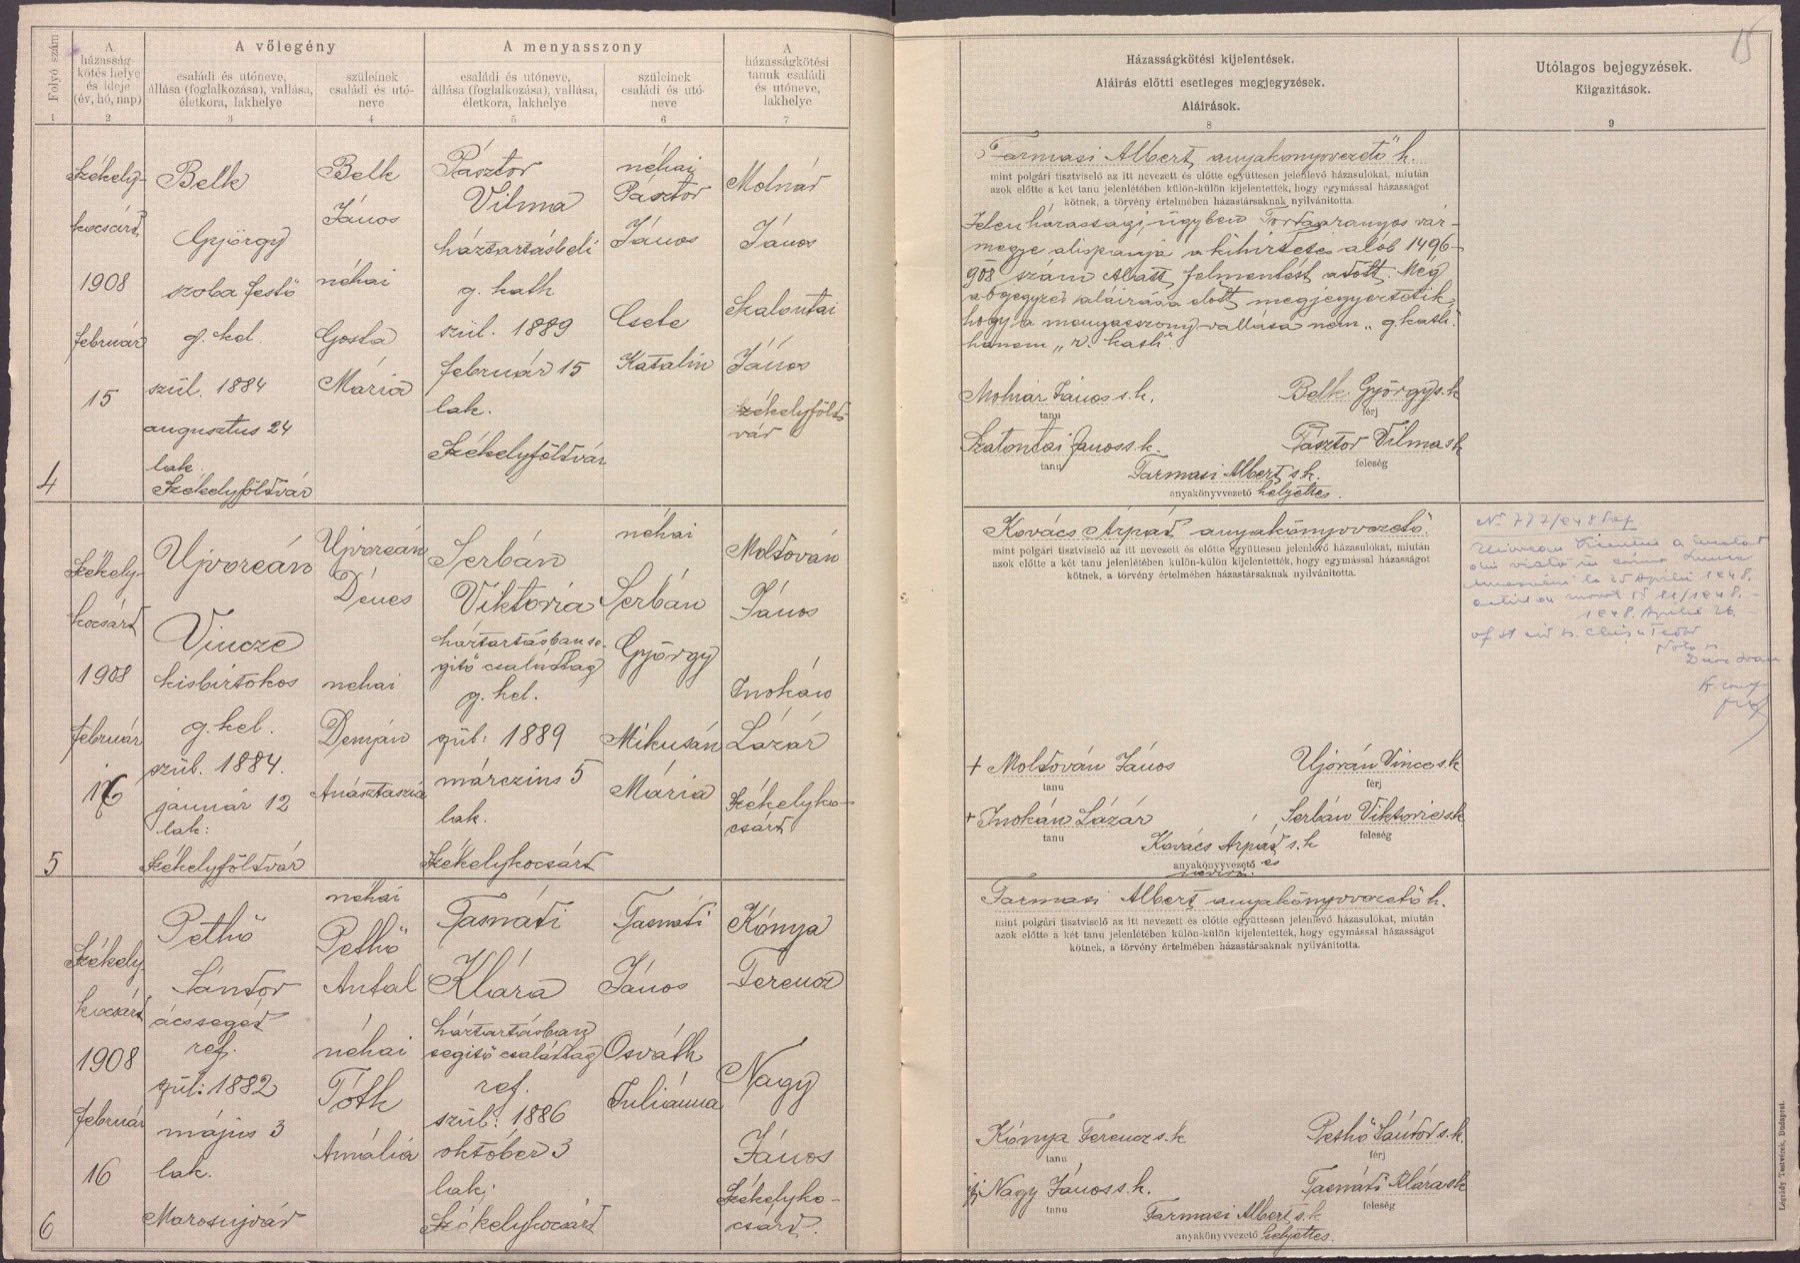 15
Folyó szám
A házasság-
kötés helye
és ideje
(év, hó, nap)
A vőlegény
családi és utóneve,
állása (foglalkozása), vallása,
életkora, lakhelye
szüleinek
családi és utó-
neve
A menyasszony
családi és utóneve,
állása (foglalkozása), vallása,
életkora, lakhelye
szüleinek
családi és utó-
neve
A
házasságkötési
tanuk családi
és utóneve,
lakhelye
Házasságkötési kijelentések.
Aláirás előtti esetleges megjegyzések.
Aláirások.
Utólagos bejegyzések.
Kiigazitások.
1 2 3 4 5 6 7 8 9
4
Székely-
kocsárd
1908
február
15
Belk
György
szoba festő
g. kel.
szül. 1884
augusztus 24
lak.
Székelyföldvár
Belk
János
néhai
Gosta
Mária
Pásztor
Vilma
háztartásbeli
g. kath
szül. 1889
február 15
lak.
Székelyföldvár
néhai
Pásztor
János
Csete
Katalin
Molnár
János
Szalontai
János
székelyföld-
vár
Farmasi Albert anyakönyvvezető h.
mint polgári tisztviselő az itt nevezett és előtte együttesen jelenlévő házasulókat, miután
azok előtte a két tanu jelenlétében külön-külön kijelentették, hogy egymással házasságot
kötnek, a törvény értelmében házastársaknak nyilvánitotta.
Jelen házassági ügyben Tordaaranyos vár-
megye alispánja a kihirdetés alól 1496-
908 szám alatt felmentést adott. Még
a bejegyzés aláirása előtt megjegyeztetik,
hogy a menyasszony vallása nem „g. kath."
hanem „r. kath".
Molnár János s. k.
tanu
Belk György s. k
férj
Szalontai János s. k.
tanu
Pásztor Vilma s k
feleség
Farmasi Albert s. k.
anyakönyvvezető helyettes.
5
Székely-
kocsárd
1908
február
16
Ujvoreán
Vincze
kisbirtokos
g. kel.
szül. 1884.
január 12
lak:
Székelyföldvár
Ujvoreán
Dénes
néhai
Demján
Anásztaszia
Serbán
Viktória
háztartásban se-
gitő családtag
g. kel.
szül: 1889
márczius 5
lak.
Székelykocsárd
néhai
Serbán
György
Mikusán
Mária
Moldován
János
Inokán
Lázár
Székelyko-
csárd
Kovács Árpád anyakönyvvezető
mint polgári tisztviselő az itt nevezett és előtte együttesen jelenlévő házasulókat, miután
azok előtte a két tanu jelenlétében külön-külön kijelentették, hogy egymással házasságot
kötnek, a törvény értelmében házastársaknak nyilvánitotta.
+ Moldován János
tanu
Ujórán Vince s. k
férj
+ Inokán Lázár
tanu
Serbán Viktorie s. k
feleség
Kovács Árpád s. k
anyakönyvvezető
No 777/948
25 Aprilie 1948.
1948. Aprilie 26
6
Székely-
kocsárd
1908
február
16
Pethő
Sándor
ácssegéd
ref.
szül: 1882
május 3
lak.
Marosujvár
néhai
Pethő
Antal
néhai
Tóth
Amália
Tasnádi
Klára
háztartásban
segitő családtag
ref.
szül: 1886
október 3
lak:
Székelykocsárd
Tasnádi
János
Osváth
Juliánna
Kónya
Ferencz
Nagy
János
Székelyko-
csárd.
Farmasi Albert anyakönyvvezető h.
mint polgári tisztviselő az itt nevezett és előtte együttesen jelenlévő házasulókat, miután
azok előtte a két tanu jelenlétében külön-külön kijelentették, hogy egymással házasságot
kötnek, a törvény értelmében házastársaknak nyilvánitotta.
Kónya Ferencz s. k
tanu
Pethő Sándor s. k.
férj
ifj Nagy János s. k.
tanu
Tasnádi Klára s k
feleség
Farmasi Albert s. k.
anyakönyvvezető helyettes.
Légrády Testvérek, Budapest.